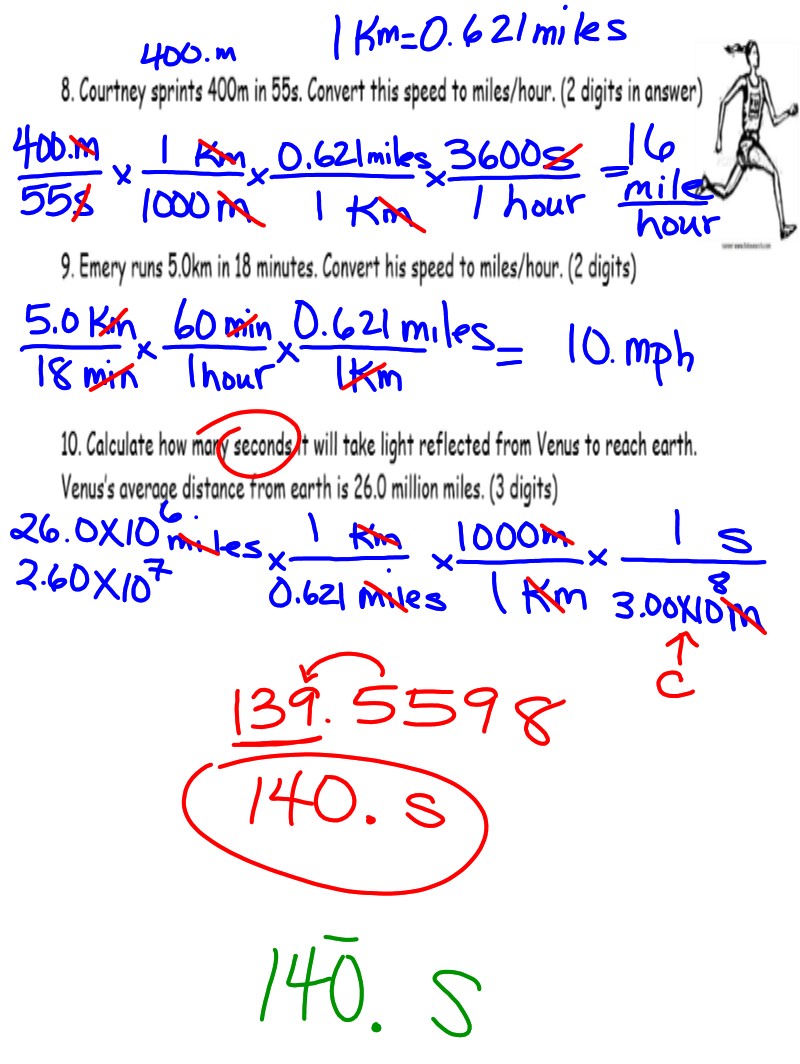 1 Km = 0.621 miles
400. m
8. Courtney sprints 400m in 55s. Convert this speed to miles/hour. (2 digits in answer)
400.m/55s × 1 Km/1000 m × 0.621 miles/1 Km × 3600s/1 hour = 16 mile/hour
9. Emery runs 5.0km in 18 minutes. Convert his speed to miles/hour. (2 digits)
5.0 Km/18 min × 60 min/1 hour × 0.621 miles/1Km = 10. mph
10. Calculate how many seconds it will take light reflected from Venus to reach earth.
Venus's average distance from earth is 26.0 million miles. (3 digits)
26.0 × 10⁶ miles × 1 Km/0.621 miles × 1000m/1 Km × 1 s/3.00×10⁸ m
2.60 × 10⁷
↑
C
139.5598
140. s
140̅. s